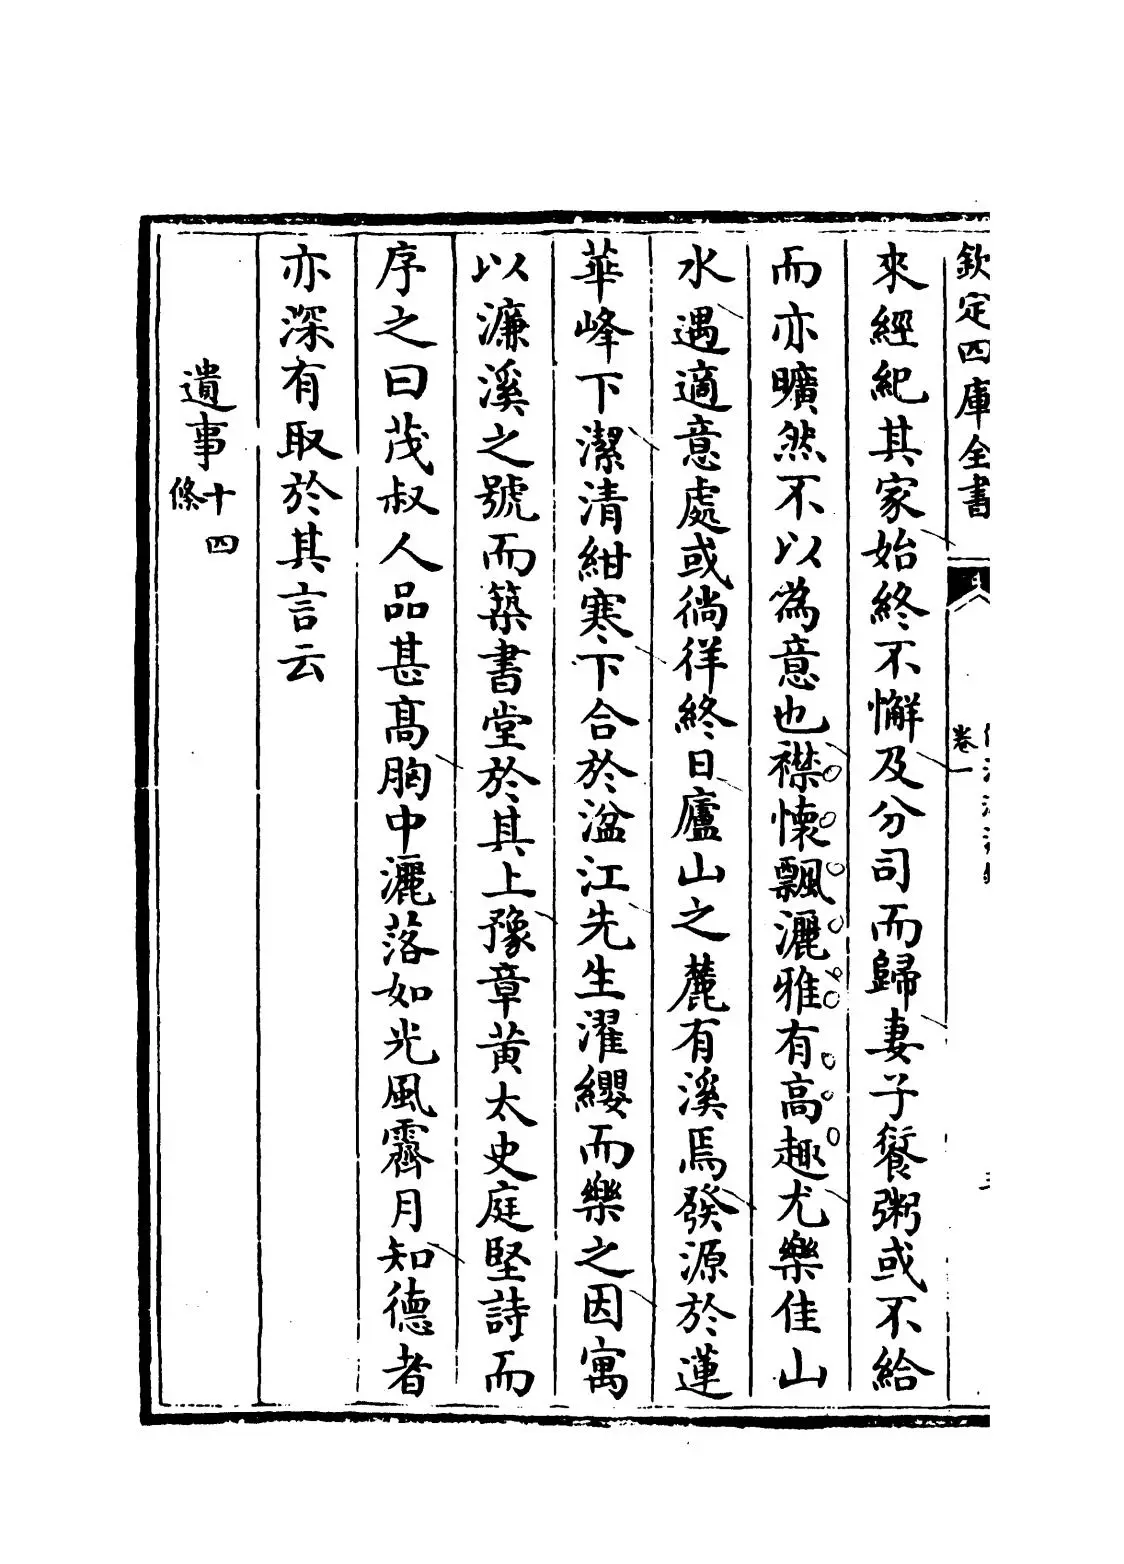 欽定四庫全書
卷一
來經紀其家始終不懈及分司而歸妻子饘粥或不給
而亦曠然不以為意也襟懷飄灑雅有高趣尤樂佳山
水遇適意處或徜徉終日廬山之麓有溪焉發源於蓮
華峰下潔清紺寒下合於湓江先生濯纓而樂之因寓
以濂溪之號而築書堂於其上豫章黄太史庭堅詩而
序之曰茂叔人品甚髙胸中灑落如光風霽月知德者
亦深有取於其言云
遺事十四條